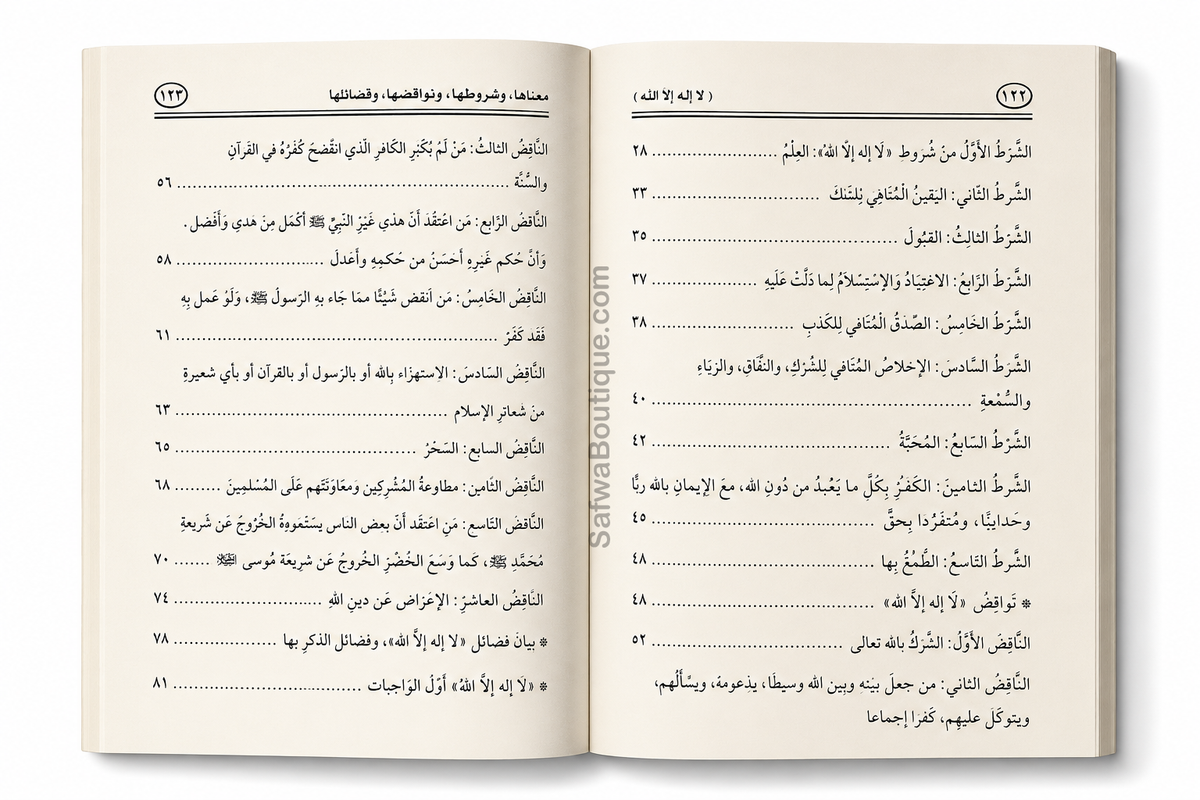 ١٢٢
( لا إله إلا الله )
الشَّرطُ الأَوَّلُ منْ شُروطِ «لَا إله إلّا اللهُ»: العِلْمُ ........................ ٢٨
الشَّرطُ الثّاني: اليَقينُ ........................ ٣٣
الشَّرطُ الثالِثُ: القبُولَ ........................ ٣٥
الشَّرطُ الرَّابعُ: وَالإسْتِسْلاَمُ لِما دَلَّتْ عَلَيهِ ........................ ٣٧
الشَّرطُ الخَامِسُ: الصِّدْقُ الْمُتَافي لِلكَذبِ ........................ ٣٨
الشَّرطُ السَّادسَ: الإخلاصُ المُتَافي لِلشُرْكِ، والنَّفَاقِ، والزيَاءِ
والسُّمْعةِ ........................ ٤٠
الشَّرْطُ السَّابعُ: المُحَبَّةُ ........................ ٤٢
الشَّرطُ الثامينَ: الكَفَرُ بِكَلِّ ما يَعْبدُ من دُونِ الله، معَ الإيمانِ بالله ربًّا
وحَدايبًّا، ومُتفَرُدَا بِحقَّ ........................ ٤٥
الشَّرطُ التَّاسعُ: الطَّمُعُّ بِها ........................ ٤٨
* تَواقِضُ «لَا إله إلاَّ الله» ........................ ٤٨
النَّاقِضَ الأَوَّلُ: الشَّرَكُ بالله تعالى ........................ ٥٢
النَّاقِضُ الثاني: من جعلَ بيَنهِ وبِين الله وسيطَا، يدْعومهَ، ويسَّألُهم،
ويتوكّلَ عليهِم، كَفرَا إجماعا
١٢٣
معناها، وشروطها، ونواقضها، وفضائلها
النَّاقِضُ الثالثُ: مَنْ لَمْ يُكَبَرِ الكَافرِ الّذي انقْضحَ كُفْرُهُ في القَرآنِ
والسُّنَّة ........................ ٥٦
النَّاقضُ الرَّابع: مَن اعْتقَدَ أَنّ هذي غَيْرِ النّبيِّ ﷺ أكْمَل مِنَ هَدي وَأَفَضل.
وَأنَّ حُكم غَيَرِهِ أَحَسَنُ من حَكمِهِ وأَعَدلَ ........................ ٥٨
النَّاقِضُ الخَامِسُ: مَن اَنقض شَيْئًا ممَا جَاء بهِ الرَسولُ ﷺ، وَلَوْ عَمل بِهِ
فَقَد كَفَرَ ........................ ٦١
النَّاقِضُ السَادسَ: الاستهزَاء بِالله أو بالرَسول أو بالقرآن أو بأي شعيرةِ
منَ شعاترِ الإسلام ........................ ٦٣
النَّاقِضُ السابع: السَحْرُ ........................ ٦٥
النَّاقِضَ الثَامِن: مطاوعةُ المُشْرِكِين وَمعَاوَنَتَهم عَلَى المُسْلمِينَ ......... ٦٨
النَّاقِضَ التَّاسع: مَنِ اعَتقَد أنّ بعض الناس الخُرْوجُ عَن شَريعةِ
مُحَمَّدِ ﷺ، كَما وَسَعَ الخُضْرَ الخُروجُ عَن شريِعَة مُوسى ....... ٧٠
النَّاقِضُ العاشرَ: الإعَراض عَن دينِ اللهِ ........................ ٧٤
* بيانَ فضائل «لا إله إلاَّ الله»، وفضائل الذكرِ بها ........................ ٧٨
* «لَا إله إلاَّ اللهُ» أَوّلُ الوَاجبات ........................ ٨١
SafwaBoutique.com